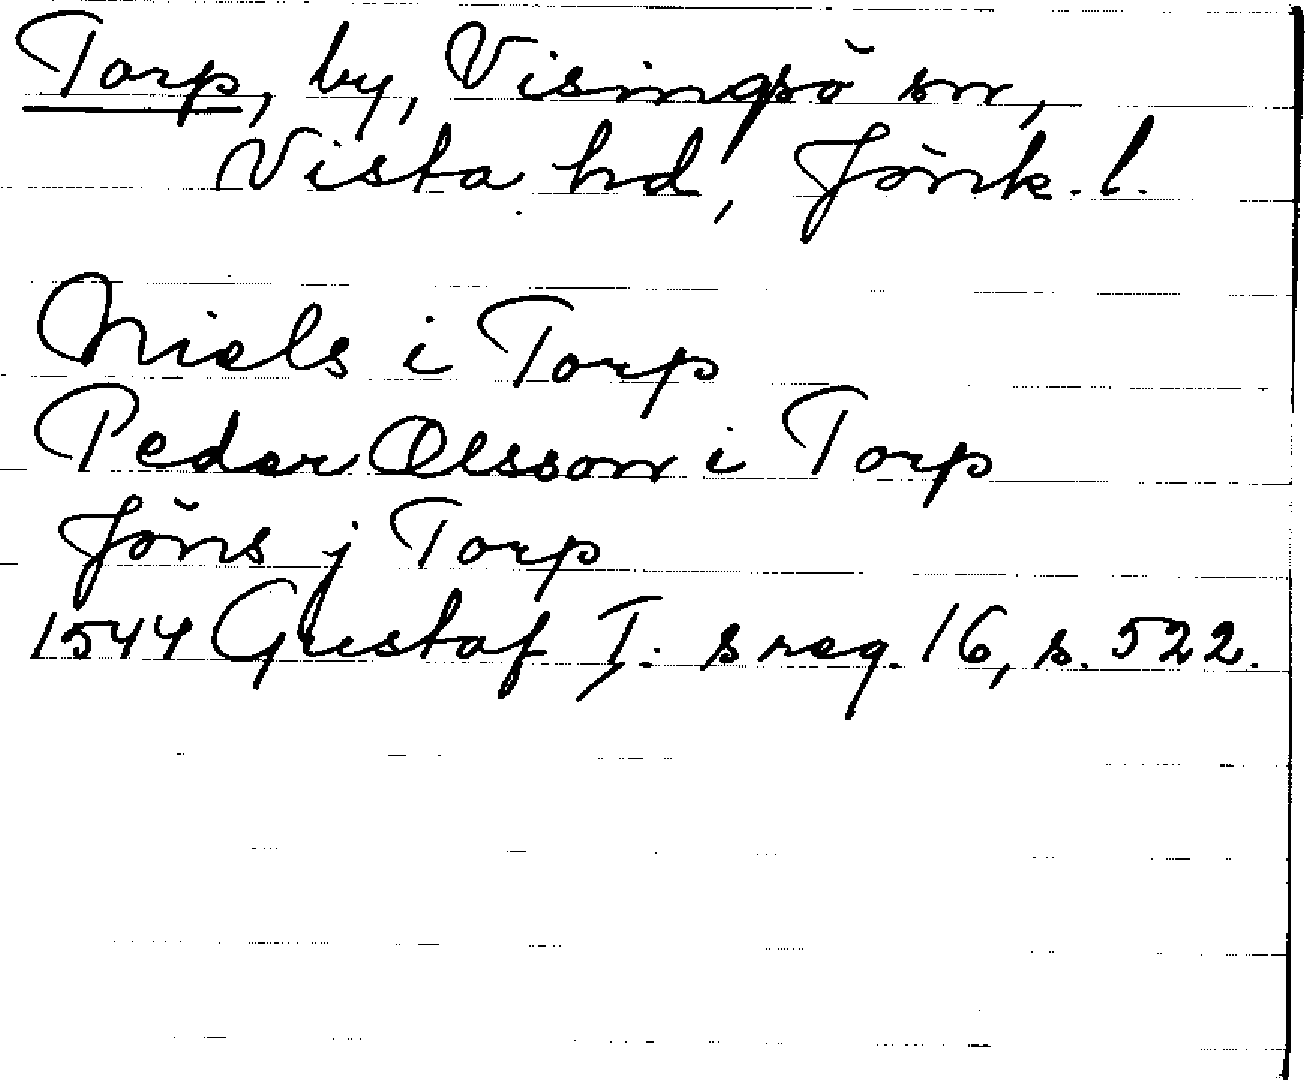 Torp, by, Visingsö sn,
Vista hd, Jönk. l.
Niels i Torp
Peder Olsson i Torp
Jöns j Torp
1544 Gustaf I: s reg. 16, s. 522.